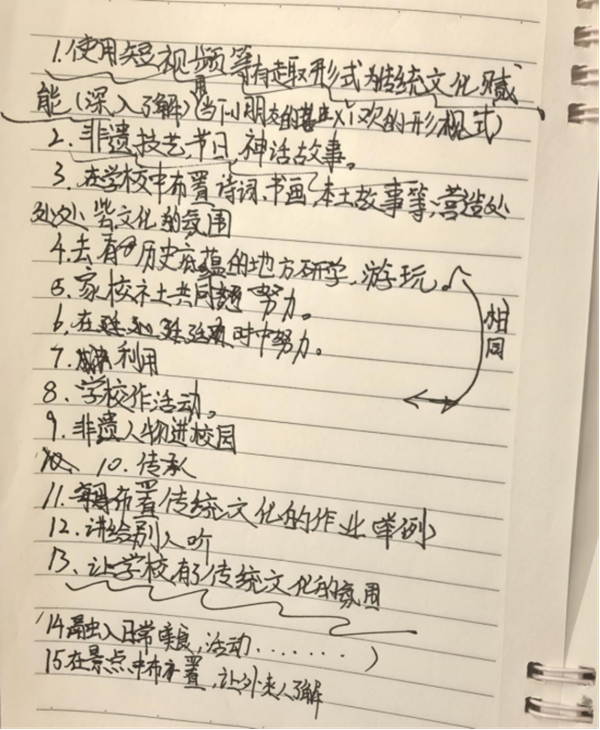 1.使用短视频等有趣取形式为传统文化赋
能(深入了解)(用当下小朋友的喜欢的形式)
2.非遗技艺,节日,神话故事。
3.在学校中布置诗词、书画,本土故事等,营造处
处处些文化的氛围
4.去有历史底蕴的地方研学,游玩。
5.家校社共同努力。
6.在 时中努力。
7.利用
8.学校作活动。
相同
9.非遗人物进校园
10.传承
11.每周布置传统文化的作业(举例)
12.讲给别人听
13.让学校有了传统文化的氛围
14融入日常美食,活动.......)
15在景点中布置,让外来人了解